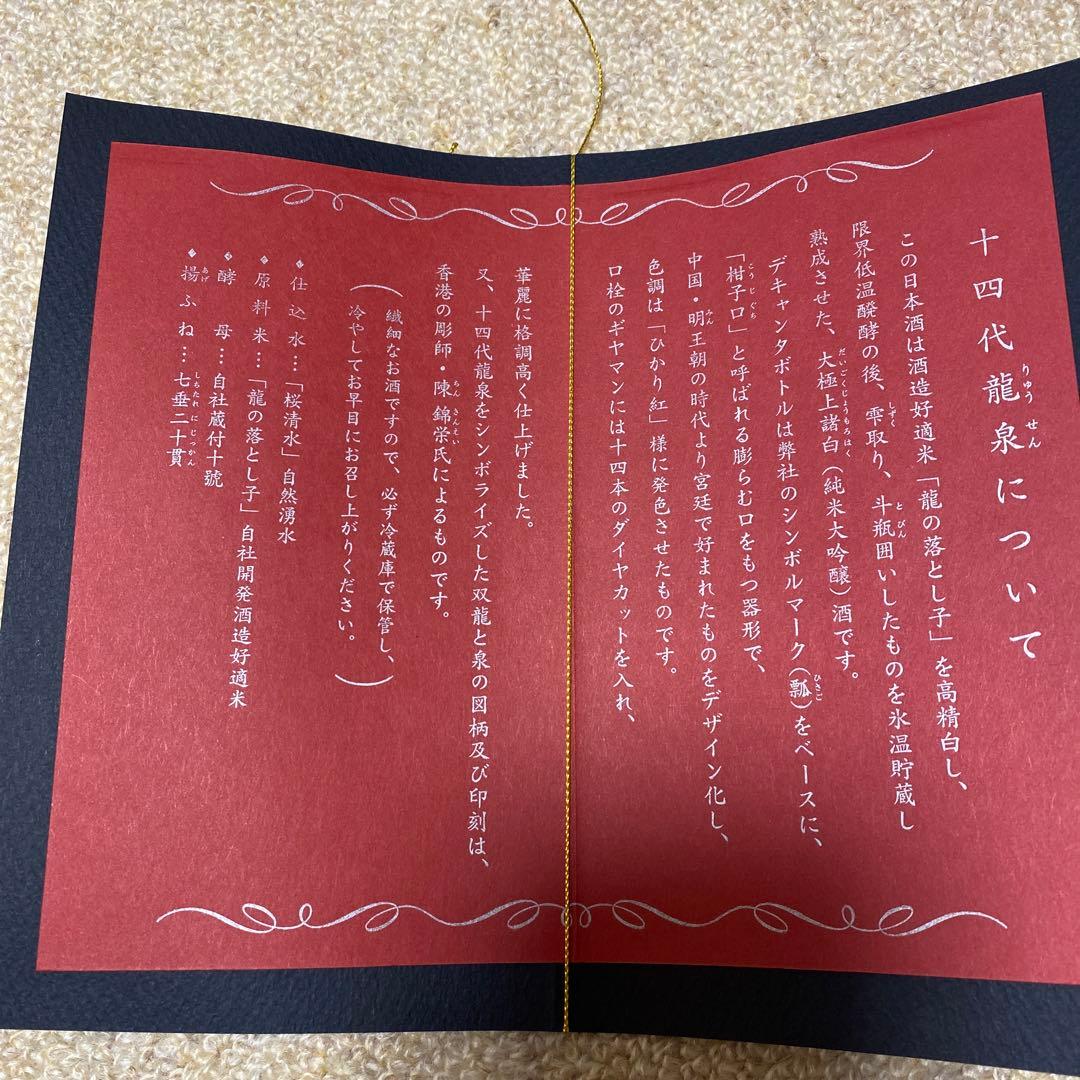 十四代龍泉について
この日本酒は酒造好適米「龍の落とし子」を高精白し、
限界低温醗酵の後、雫取り、斗瓶囲いしたものを氷温貯蔵し
熟成させた、大極上諸白（純米大吟醸）酒です。
デキャンタボトルは弊社のシンボルマーク（瓢）をベースに、
「柑子口」と呼ばれる膨らむ口をもつ器形で、
中国・明王朝の時代より宮廷で好まれたものをデザイン化し、
色調は「ひかり紅」様に発色させたものです。
口栓のギヤマンには十四本のダイヤカットを入れ、
華麗に格調高く仕上げました。
又、十四代龍泉をシンボライズした双龍と泉の図柄及び印刻は、
香港の彫師・陳錦栄氏によるものです。
（繊細なお酒ですので、必ず冷蔵庫で保管し、
冷やしてお早目にお召し上がりください。）
仕込水…「桜清水」自然湧水
原料米…「龍の落とし子」自社開発酒造好適米
酵母…自社蔵付十號
揚ふね…七垂二十貫